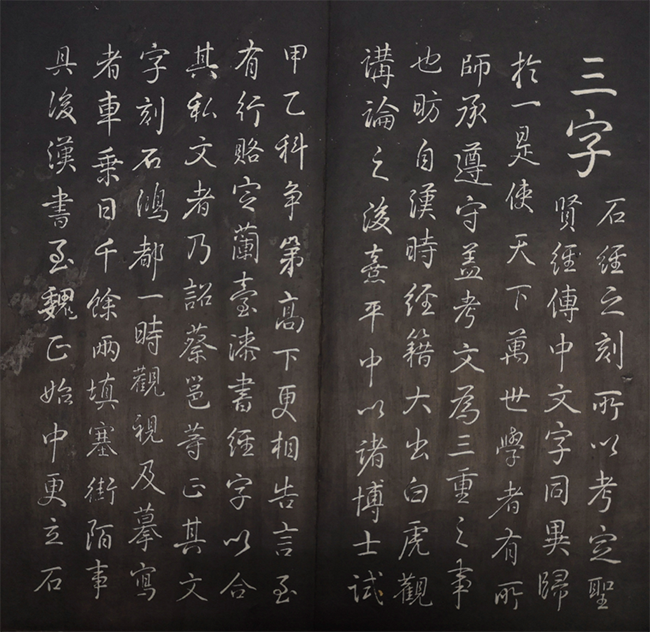 三字
石經之刻所以考定聖
賢經傳中文字同異歸
於一是使天下萬世學者有所
師承遵守蓋考文為三重之事
也昉自漢時經籍大出白虎觀
講論之後熹平中以諸博士試
甲乙科争第高下更相告言至
有行賂定蘭臺漆書經字以合
其私文者乃詔蔡邕等正其文
字刻石鴻都一時觀視及摹寫
者車乗日千餘兩填塞街陌事
具後漢書至魏正始中更立石